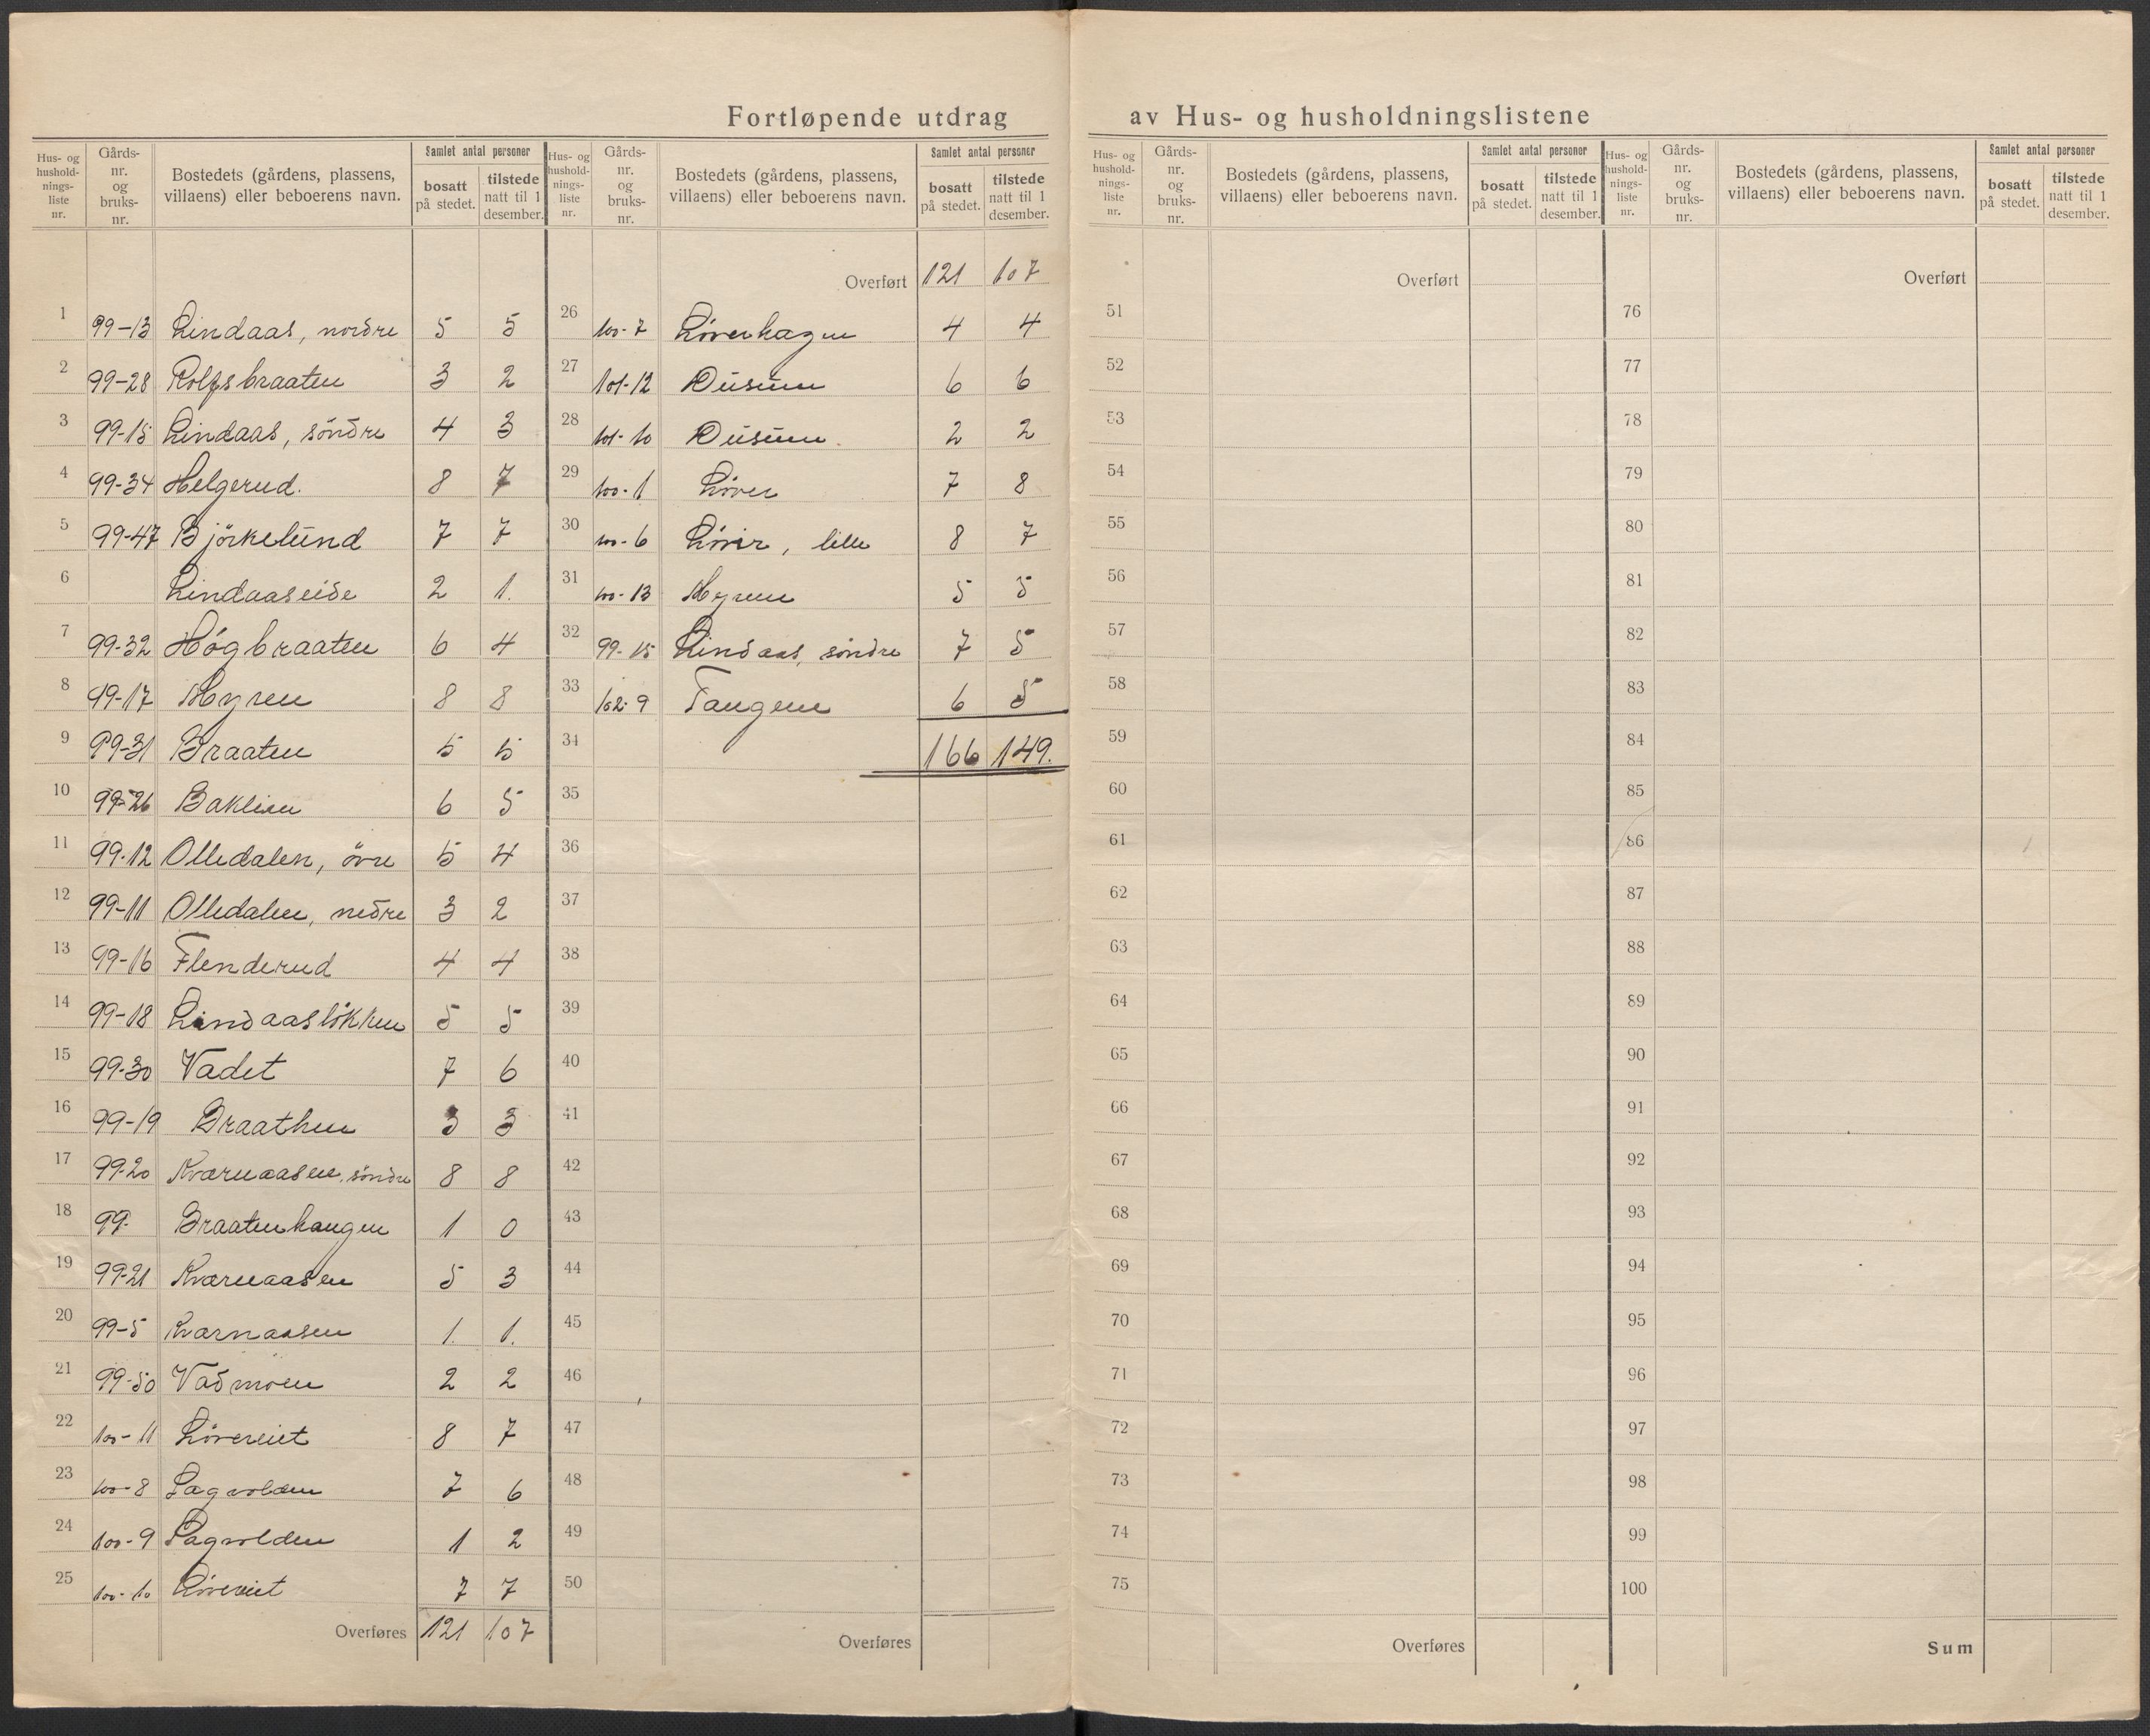 Fortløpende utdrag av Hus- og husholdningslistene
Hus- og hushold- nings- liste nr. | Gårds- nr. og bruks- nr. | Bostedets (gårdens, plassens, villaens) eller beboerens navn. | Samlet antal personer | bosatt på stedet. | tilstede natt til 1 desember.
1 99-13 Lindaas, nordre 5 5
2 99-28 Rolfsbraaten 3 2
3 99-15 Lindaas, söndre 4 3
4 99-34 Helgerud. 8 7
5 99-47 Björkelund 7 7
6 Lindaaseide 2 1.
7 99-32 Högbraaten 6 4
8 99-17 Myren 8 8
9 99-31 Braaten 5 5
10 99-26 Baklien 6 5
11 99-12 Olledalen, övre 5 4
12 99-11 Olledalen, nedre 3 2
13 99-16 Flenderud 4 4
14 99-18 Lindaaslökken 5 5
15 99-30 Vadet 7 6
16 99-19 Braathen 3 3
17 99-20 Kværnaasen, söndre 8 8
18 99- Braatenhaugen 1 0
19 99-21 Kværnaasen 5 3
20 99-5 Kvarnaasen 1. 1.
21 99-50 Vadmoen 2 2
22 100-11 Lövereiet 8 7
23 100-8 Sagvolden 7 6
24 100-9 Sagvolden 1 2
25 100-10 Lövereiet 7 7
Overføres 121 107
Hus- og hushold- nings- liste nr. | Gårds- nr. og bruks- nr. | Bostedets (gårdens, plassens, villaens) eller beboerens navn. | Samlet antal personer | bosatt på stedet. | tilstede natt til 1 desember.
Overført 121 107
26 100-7 Löverhagen 4 4
27 101-12 Dusum 6 6
28 101-10 Dusum. 2 2
29 100-1 Löver 7 8
30 100-6 Löver, lille 8 7
31 100-13 Myren 5 5
32 99-15 Lindaas, söndre 7 5
33 102-9 Tangen 6 5
34 166 149.
35
36
37
38
39
40
41
42
43
44
45
46
47
48
49
50
Overføres
Hus- og hushold- nings- liste nr. | Gårds- nr. og bruks- nr. | Bostedets (gårdens, plassens, villaens) eller beboerens navn. | Samlet antal personer | bosatt på stedet. | tilstede natt til 1 desember.
Overført
51
52
53
54
55
56
57
58
59
60
61
62
63
64
65
66
67
68
69
70
71
72
73
74
75
Overføres
Hus- og hushold- nings- liste nr. | Gårds- nr. og bruks- nr. | Bostedets (gårdens, plassens, villaens) eller beboerens navn. | Samlet antal personer | bosatt på stedet. | tilstede natt til 1 desember.
Overført
76
77
78
79
80
81
82
83
84
85
86
87
88
89
90
91
92
93
94
95
96
97
98
99
100
Sum